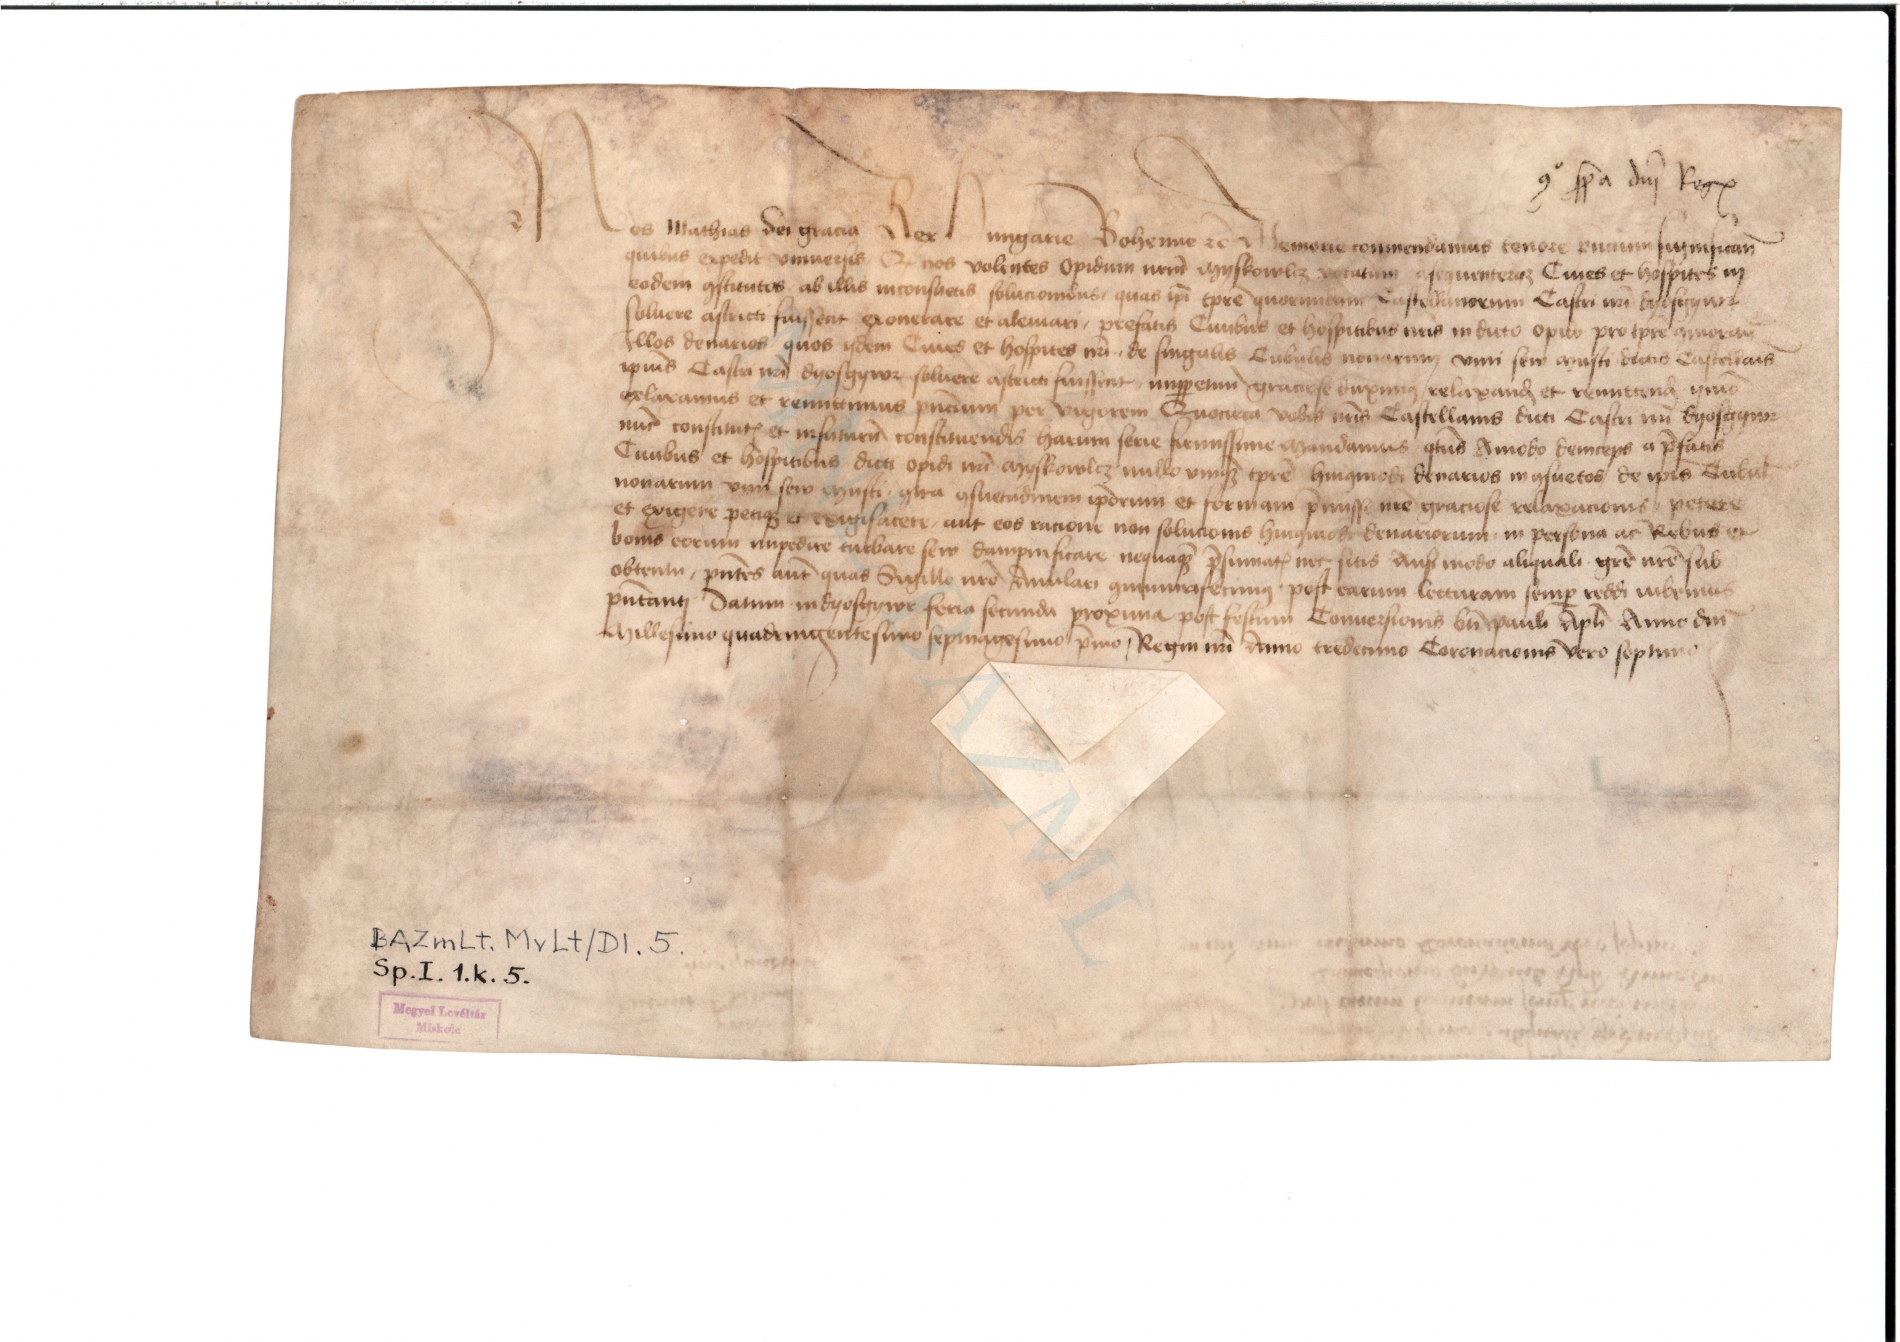 Nos Mathias dei gracia Rex Hungarie Bohemie &c Memorie commendamus tenore pñcium significan̄
quibus expedit vniuersis Q nos volentes Opidum nrm̄ Myskowlcz vocatum Ciues et hospites in
eodem ꝯstitutos ab illis inconsuetis solucionibus quas ipi tpre quorundam Castellanorum Castri nri dyosgywr
soluere astricti fuissent exonerare et aleuiari prefatis Ciuibus et hospitibus nris in dicto opido pro tpre
Illos denarios quos ijdem Ciues et hospites nri de singulis Cubulis nonarum vini sew musti dictis Castellanis
ipius Castri nri dyosgywr soluere astricti fuissent graciose duximus relaxand et remittend ymo
relaxamus et remittimus pñcium per vigorem Quocirca vobis nris Castellanis dicti Castri nri dyosgywr
nunc constitutis et infuturum constituendis harum serie firmissime Mandamus qtus Amodo deinceps a prefatis
Ciuibus et hospitibus dicti opidi nri Myskowlcz nullo vnquam tpre huiusmodi denarios inꝯsuetos de ipis Cubul
nonarum vini sew musti ꝯtra ꝯsuetudinem ipõrum et formam pmisse nre graciose relaxacionis petere
et exigere petique et exigifacere aut eos racione non solucionis huiusmodi denariorum in persona ac Rebus et
bonis eorum impedire turbare sew dampnificare nequaquam psumatis nec sitis Ausi modo aliquali grē nrē sub
obtentu pñtes aut quas Sigillo nrō Anulari post earum lecturam semper reddi iubemus
pñtanti Datum in dyosgywr feria secunda proxima post festum Conuersionis bti pauli Apli Anno dni
Millesimo quadringentesimo septuagesimo pmo Regni nri Anno tredecimo Coronacionis vero septimo
BAZmLt. MvLt/Dl. 5.
Sp. I. 1. k. 5.
Megyei Levéltár
Miskolc
BAZML